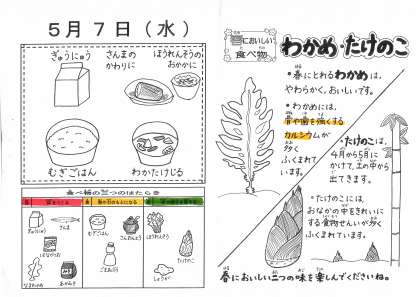 5月7日(水)
ぎゅうにゅう
さんまの
かわりに
ほうれんそうの
おかかに
むぎごはん
わかたけじる
食べ物の三つのはたらき
ぎゅうにゅう
さんま
むぎごはん
ほうれんそう
春においしい
食べ物
わかめ・たけのこ
・春にとれるわかめは、
やわらかく、おいしいです。
・わかめには、
骨や歯を強くする
カルシウムが
多く
ふくまれて
います。
・たけのこは、
4月から5月に
かけて、土の中から
出てきます。
・たけのこには、
おなかの中をきれいに
する食物せんいが多く
ふくまれています。
春においしい二つの味を楽しんでくださいね。